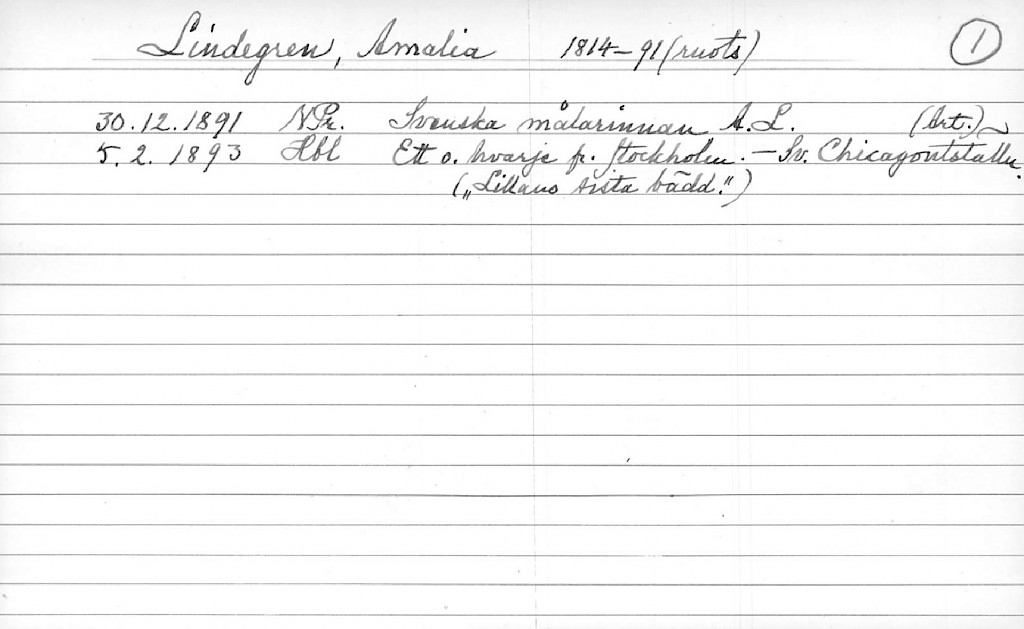 Lindegren, Amalia 1814–91 (ruots) 1
30.12.1891 NPr. Svenska målarinnan A. L. (Art.)
5. 2. 1893 Hbl Ett o. hvarje fr. Stockholm. – Sv. Chicagoutställn.
(„Lillans sista bädd.")